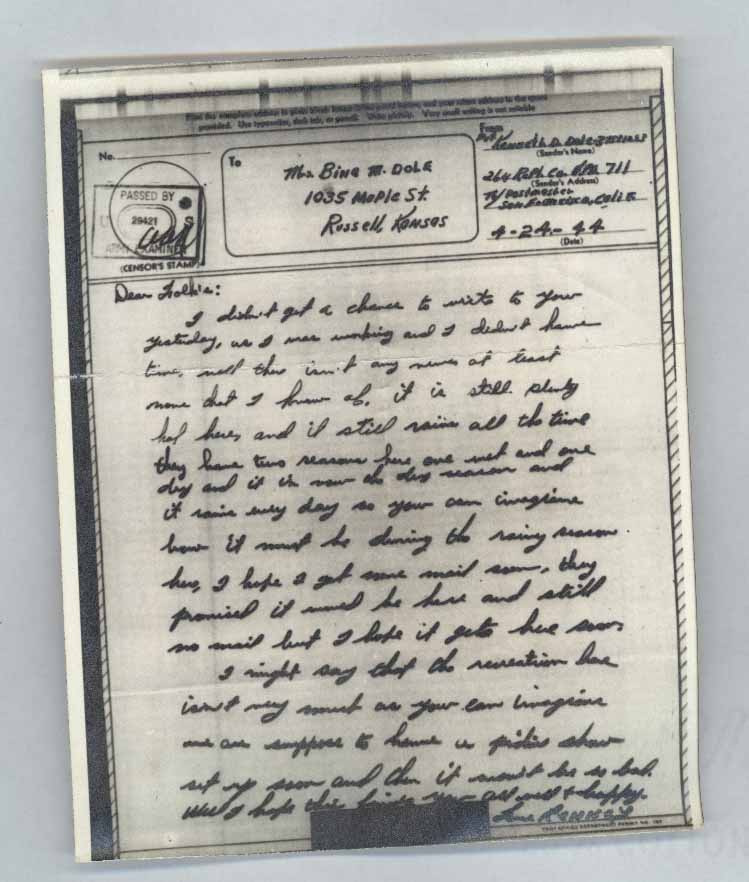 Print the complete address in plain block letters in the panel below, and your return address in the space
provided. Use typewriter, dark ink, or pencil. Write plainly. Very small writing is not suitable.
No.
To
Mrs. Bina M. DOLE
1035 Maple St.
Russell, Kansas
From
Pvt Kenneth D. Dole
(Sender's Name)
264 Repl. Co. APO 711
(Sender's Address)
% Postmaster
San Francisco, Calif.
4-24-44
(Date)
PASSED BY
U S
29421
ARMY EXAMINER
(CENSOR'S STAMP)
Dear Folkie:
I didn't get a chance to write to you
yesterday, as I was working and I didn't have
time, well there isn't any news at least
none that I know of, it is still plenty
hot here, and it still rains all the time
they have two seasons here one wet and one
dry and it is now the dry season and
it rains every day so you can imagine
how it must be during the rainy season
here, I hope I get some mail soon, they
promised it would be here and still
no mail but I hope it gets here soon.
I might say that the recreation here
isn't very much as you can imagine
we are suppose to have a picture show
set up soon and then it won't be so bad.
Well I hope this finds you all well & happy.
Love Kenneth
POST OFFICE DEPARTMENT PERMIT NO.